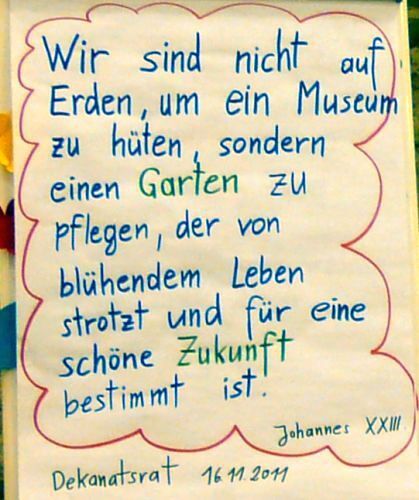 Wir sind nicht auf
Erden, um ein Museum
zu hüten, sondern
einen Garten zu
pflegen, der von
blühendem Leben
strotzt und für eine
schöne Zukunft
bestimmt ist.
Johannes XXIII.
Dekanatsrat 16.11.2011